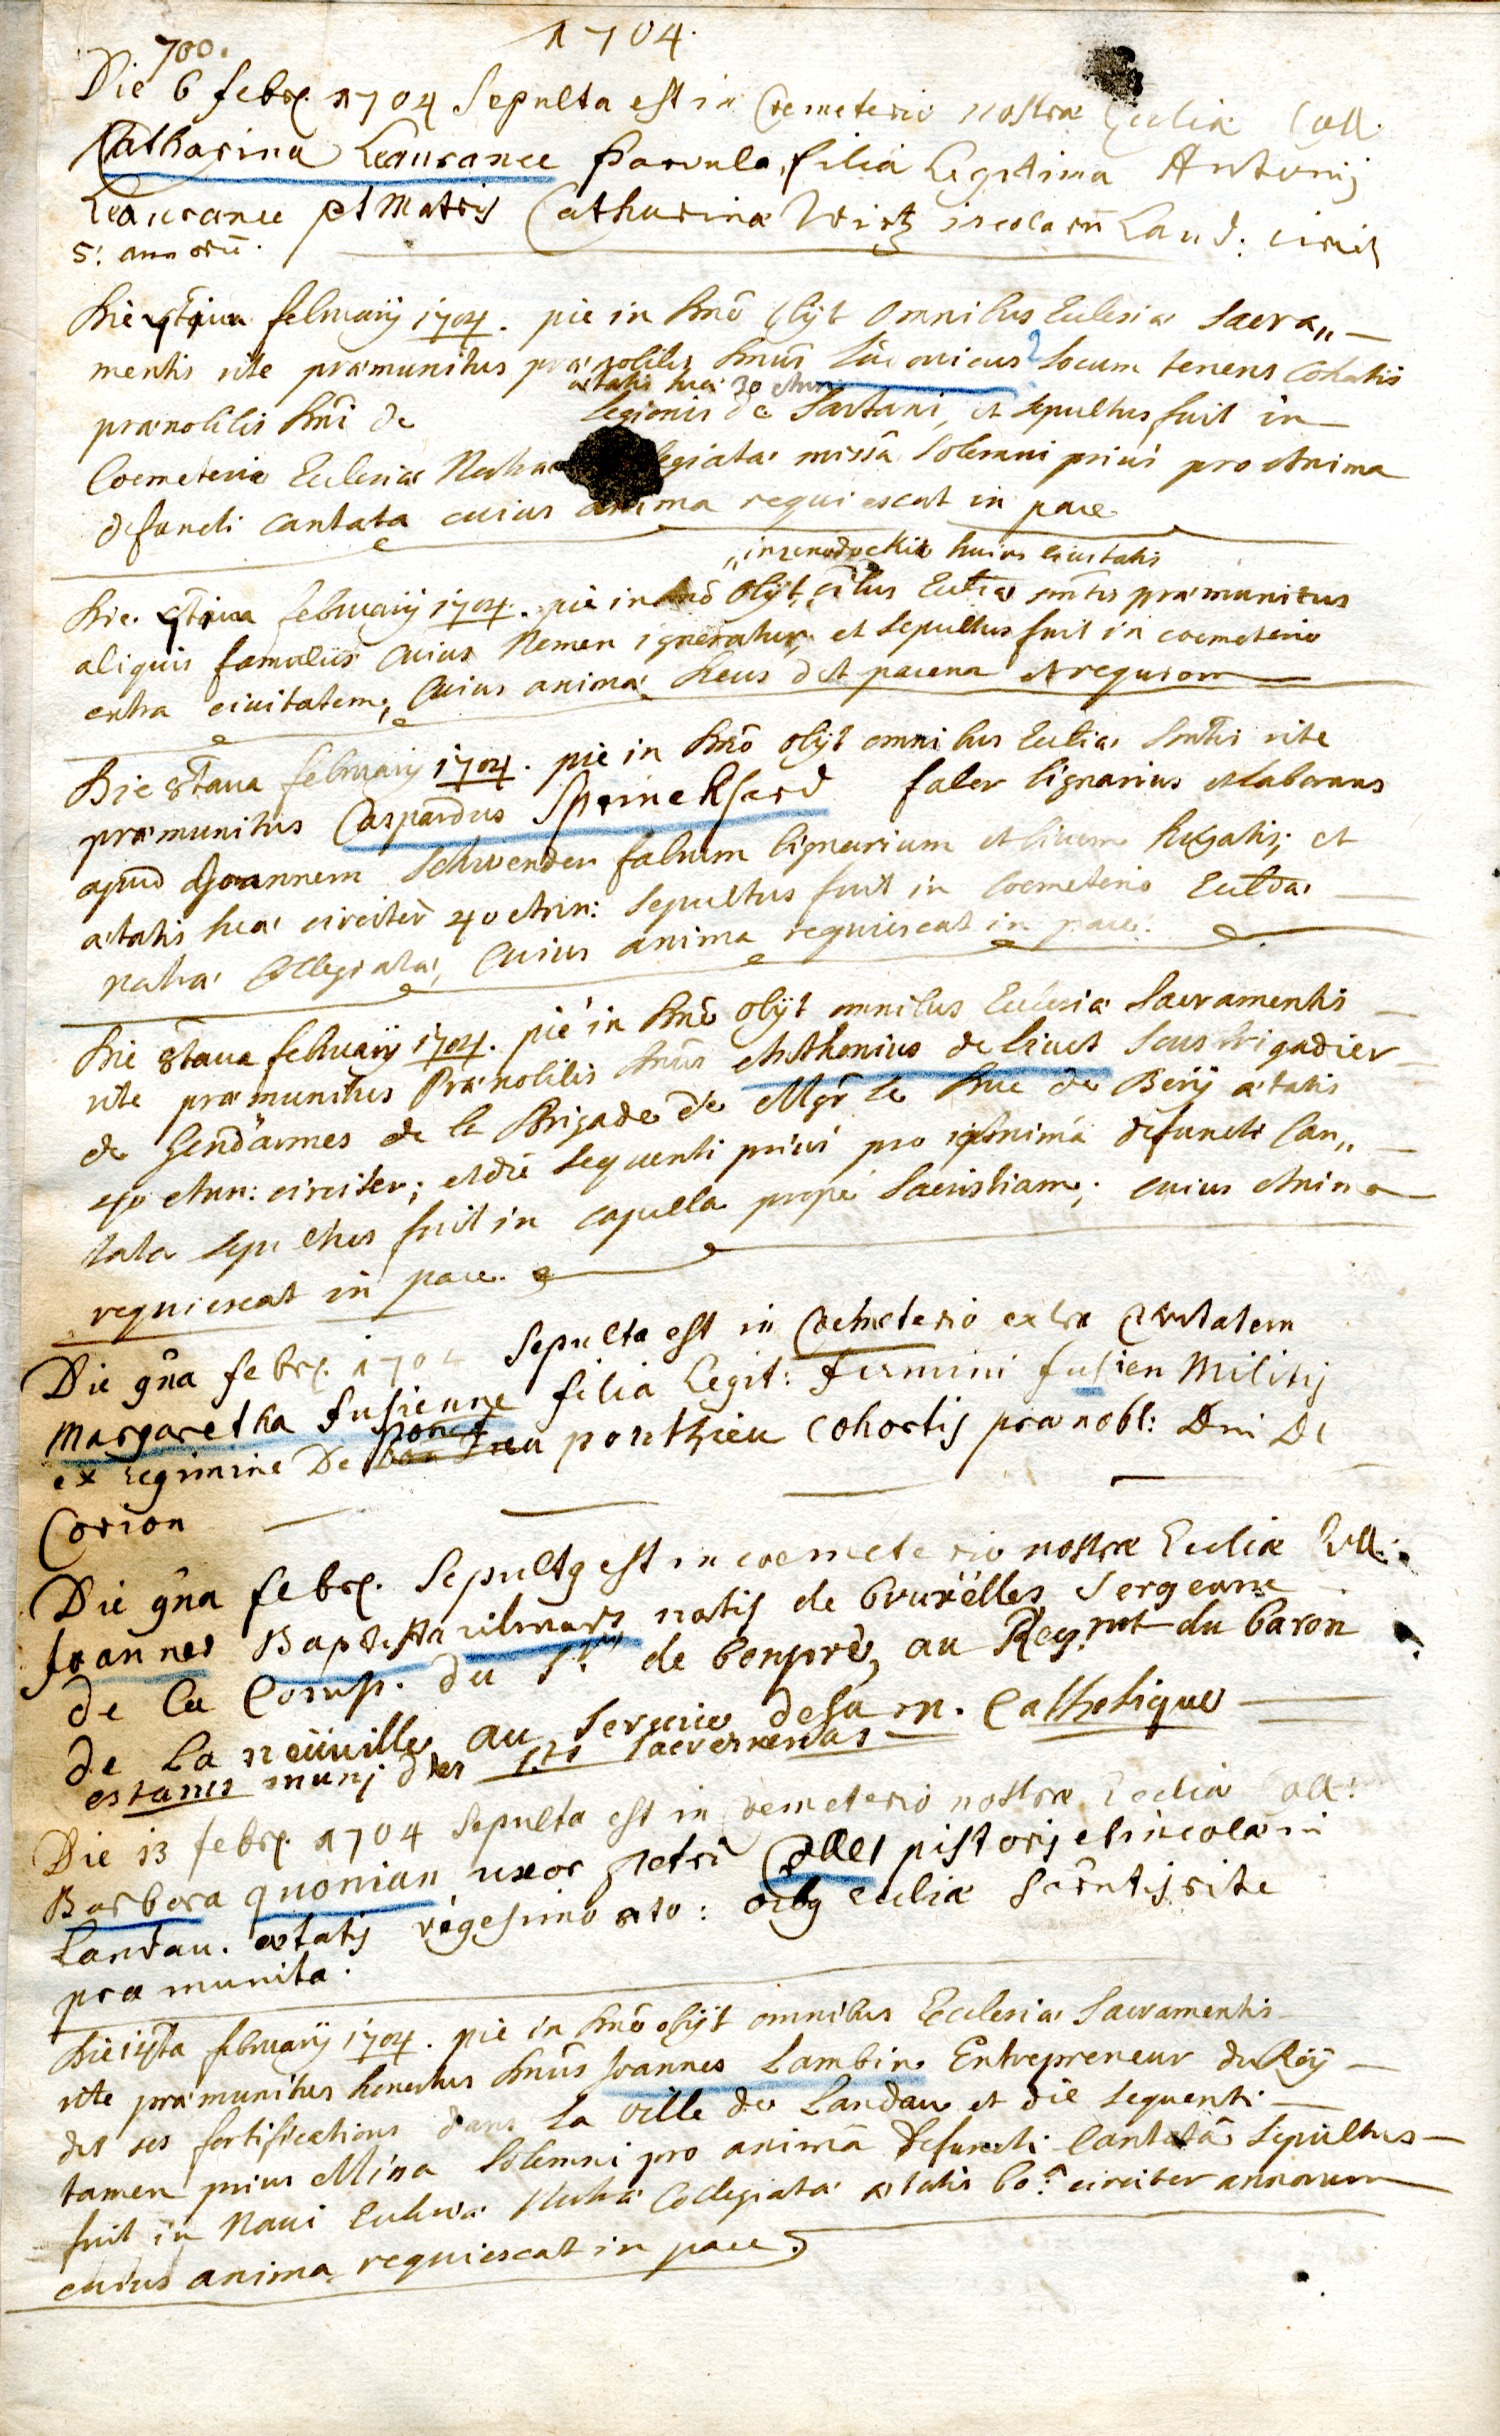 1704.
700.
Die 6 febr. 1704 Sepulta est in Coemeterio nostræ Eccliæ Coll.
Catharina Leaurance Parvula, filia Legitima Antonij
Leaurance et Matris Catharinæ Wirtz incolarū Land:
5: annorū.
Die februarij 1704. pie in Dnō obijt omnibus Ecclesiæ Sacra„
mentis rite præmunitus prænobilis Dnūs Ludovicus ? Locum tenens Cohortis
ætatis suæ 30 Ann
prænobilis Dnī de Legionis de Sartani, et sepultus fuit in
Coemeterio Ecclesiæ Nostræ missâ solemni priùs pro Anima
defuncti cantata cuius anima requiescat in pace
„in xenodochio huius civitatis
Die februarij 1704. pie in Dnō Obijt, Eccliæ smtis præmunitus
aliquis famulus cuius Nomen ignoratur, et sepultus fuit in coemeterio
extra civitatem; Cuius animæ Deus det pacem et requiem
Die 8taua februarij 1704. pie in Dnō obijt omnibus Eccliæ Smtis rite
præmunitus Caspardus Speinekherd faber lignarius et laborans
apud Joannem Schwenden fabrum lignarium et civem huiatis; et
ætatis suæ circiter 40 Ann: Sepultus fuit in Coemeterio Eccliæ
nostræ Collegiatæ, Cuius anima requiescat in pace.
Die 8taua februarij 1704. pié in Dnō obijt omnibus Ecclesiæ Sacramentis
rite præmunitus Prænobilis Dnūs Anthonius de liuet Sous brigadier
de Gendarmes de la Brigade de Mgr le Duc de Berÿ ætatis
40 Ann: circiter; et die sequenti priùs pro Animâ defuncti Can„
tata sepultus fuit in capella propé Sacristiam; cuius Anima
requiescat in pace.
Die 9na febr. 1704 Sepulta est in Coemeterio extra Civitatem
Margaretha fusienne filia Legit: Firmini fusien Militis
ex regimine De ponthieu cohortis prænobl: Dni De
Corion
Die 9na febr. Sepultg est in coemeterio nostræ Eccliæ Coll:
Joannes Baptista vilmars natif de bruxëlles Sergeant
de la Comp. du Sr. de bonprè, au Regmt du baron
de La neüuille au Seruice de Sa m. Catholique
estants munj des Sts Sacremens
Die 13 febr. 1704 Sepulta est in Coemeterio nostræ Eccliæ Coll:
Barbara quonian uxor Petri Collet pistoris et incolæ in
Landau. ætatis vigesimo 8to: oibg eccliæ Sacrntis rite
præmunita.
Die 14ta februarij 1704. pie in Dnō obijt omnibus Ecclesiæ Sacramentis
rite præmunitus honestus Dnūs Joannes Lambin Entrepreneur du Roÿ
des ses fortifications dans La ville de Landau et die sequenti
tamen prius Missa Solemni pro animâ defuncti Cantatâ Sepultus
fuit in Naui Ecclesiæ Nostræ Collegiatæ ætatis 60: circiter annorum
cuius anima requiescat in pace.